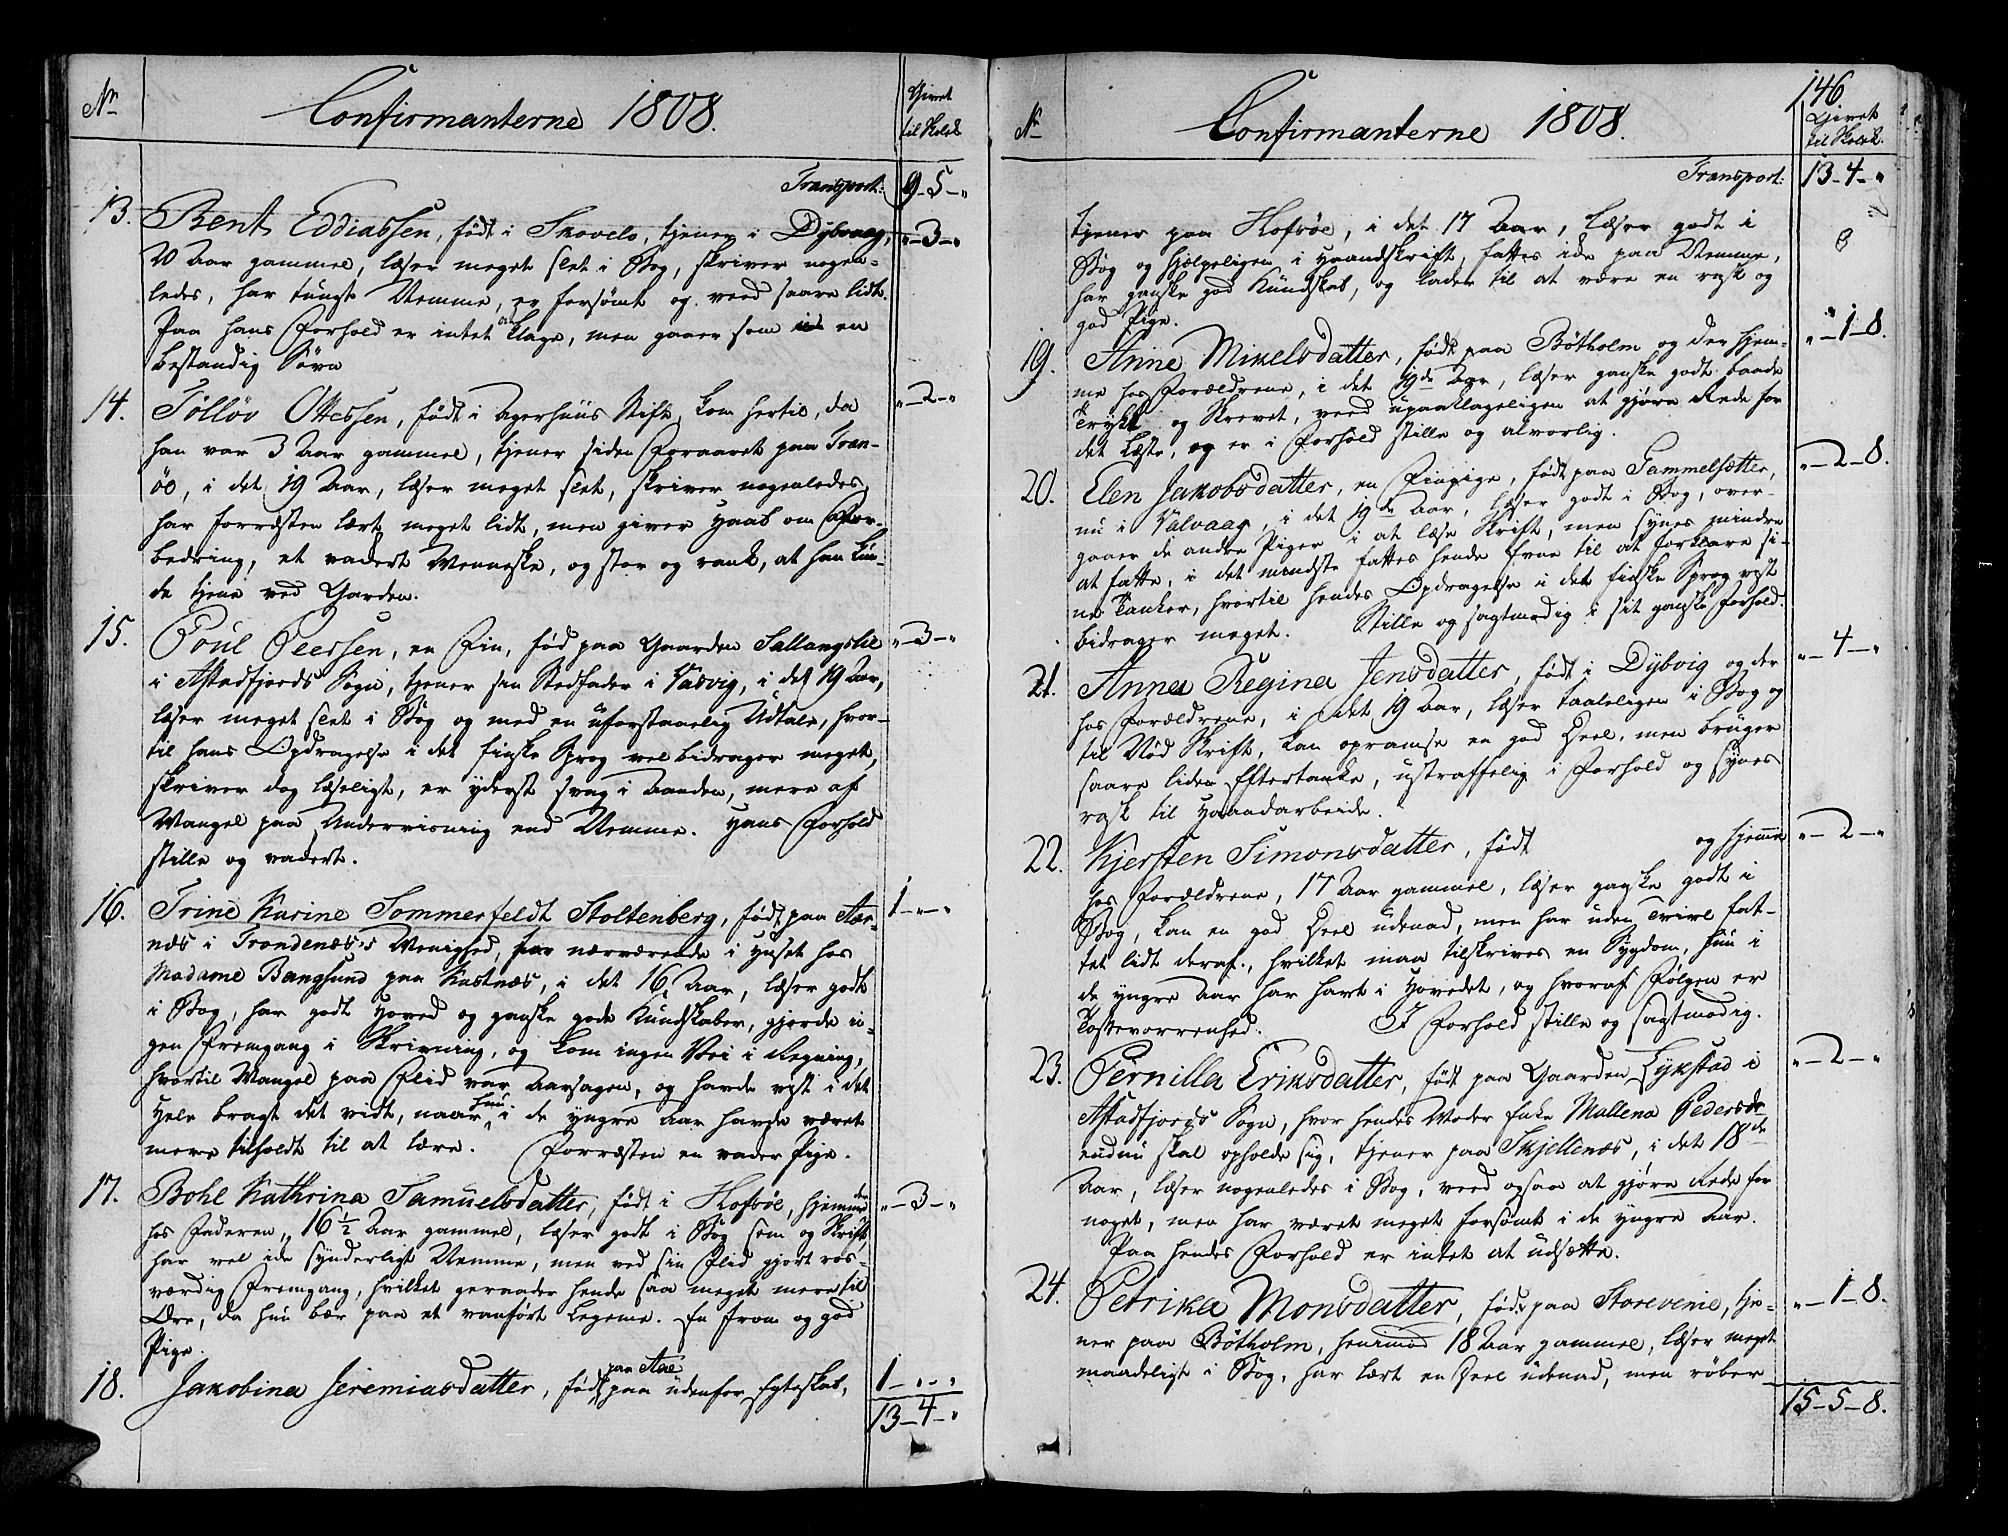 Nr
Confirmanterne 1808.
Givet
til Skolek
Transport: 9-5-"
13. Bent Eddiassen, født i Skovels, tjener i Dybvaag, "-3-"
20 Aar gammel, læser meget slet i Bog, skriver nogen-
ledes, har tungt Nemme, er forsømt og veed saare lidt.
Paa hans Forhold er intet at klage, men gaaer som i en
bestandig Søvn
14. Tølløv Ottessen, født i Agerhuus Stift, kom hertil, da "-2-"
han var 3 Aar gammel, tjener siden Foraaret paa Tran-
öe, i det 19 Aar, læser meget slet, skriver nogenledes,
har forresten lært meget lidt, men giver Haab om For-
bedring, et vakkert Menneske, og stor og rank, at han kun-
de tjene ved Garden.
15. Poul Peersen, en Fin, fød paa Gaarden Sallangslie "-3-"
i Astafjords Sogn, tjener sin Stedfader i Vasvig, i det 19 Aar,
læser meget slet i Bog og med en uforstaaelig Udtale, hvor-
til hans Opdragelse i det finske Sprog vel bidrager meget,
skriver dog læseligt, er yderst svag i Aanden, mere af
Mangel paa Underviisning end Nemme. Hans Forhold
stille og vakkert.
16. Trine Karine Sommerfeldt Stoltenberg, født paa Aar- 1-"-"
næs i Trondenæs's Menighed, nærværende i Huset hos
Madame Bangsund paa Kastnæs, i det 16 Aar, læser godt
i Bog, har godt Hoved og ganske gode Kundskaber, gjorde in-
gen Fremgang i Skrivning, og kom ingen Vei i Regning,
hvortil Mangel paa Flid var Aarsagen, og havde vist i det
Hele bragt det vidt, naar hun i de yngre Aar havde været
mere tilholdt til at lære. Forresten en vakker Pige.
17. Bohl Kathrina Samuelsdatter, født i Hofsøe, hjemme "-3-"
hos Faderen, 16 1/2 Aar gammel, læser godt i Bog som og Skrift,
har vel ikke synderligt Nemme, men ved sin Flid gjort ros-
værdig Fremgang, hvilket geraader hende saa meget mere til
Ære, da hun bær paa et vanført Legeme. En from og god
Pige.
18. Jakobina Jeremiasdatter, født paa Aae udenfor Egteskab, 1-"-"
13-4-"
146
Nr
Confirmanterne 1808.
Givet
til Skolek.
Transport: 13-4-"
tjener paa Hofsøe, i det 17 Aar, læser godt i
Bog og hjelpeligen i Haandskrift, fattes ikke paa Nemme,
har ganske god Kundskab, og lader til at være en rask og
god Pige.
19. Anne Mikelsdatter, født paa Bøtholm og der hjem- "-1-8.
me hos Forældrene, i det 19de Aar, læser ganske godt baade
Trykt og Skrevet, veed upaaklageligen at gjøre Rede for
det Læste, og er i Forhold stille og alvorlig.
20. Elen Jakobsdatter, en Finpige, født paa Gammelsætter, "-2-8.
nu i Valvaag, i det 19de Aar, læser godt i Bog, over-
gaaer de andre Piger i at læse Skrift, men synes mindre
at fatte, i det mindste fattes hende Evne til at forklare si-
ne Tanker, hvortil hendes Opdragelse i det finske Sprog vist
bidrager meget. Stille og sagtmodig i sit ganske Forhold.
21. Anna Regina Jensdatter, født i Dybvig og der "-4-"
hos Forældrene, i det 19 Aar, læser taaleligen i Bog og
til Nød Skrift, kan opramse en god Deel, men bruger
saare liden Eftertanke, ustraffelig i Forhold og synes
rask til Haandarbeide.
22. Kjersten Simonsdatter, født og hjemme "-2-"
hos Forældrene, 17 Aar gammel, læser ganske godt i
Bog, kan en god Deel udenad, men har uden Tvivl fat-
tet lidt deraf, hvilket maa tilskrives en Sygdom, hun i
de yngre Aar har havt i Hovedet, og hvoraf Følgen er
Tossevorrenhed. I Forhold stille og sagtmodig.
23. Pernilla Eriksdatter, født paa Gaarden Lykstad i "-2-"
Astafjords Sogn, hvor hendes Moder Enke Mallena Pedersdr
endnu skal opholde sig, tjener paa Skjellenæs, i det 18de
Aar, læser nogenledes i Bog, veed ogsaa at gjøre Rede for
noget, men har været meget forsømt i de yngre Aar.
Paa hendes Forhold er intet at udsætte.
24. Petrika Monsdatter, født paa Storevenie, tje- "-1-8.
ner paa Bøtholm, henimod 18 Aar gammel, læser meget
maadeligt i Bog, har lært en Deel udenad, men røber
15-5-8.